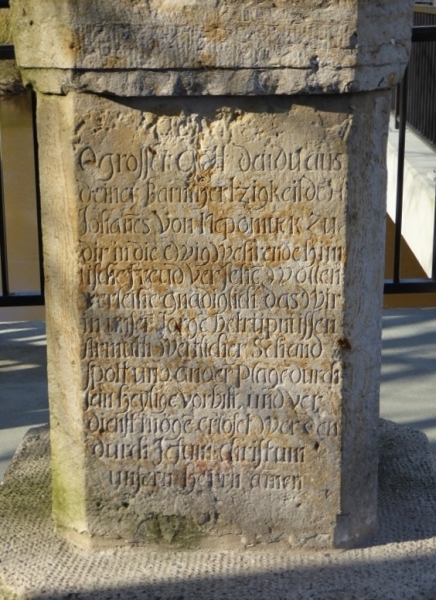 O grosser Gott den du aus
deiner Barmhertzigkeit de H
Johanes Von Nepomuck Zu
dir in die Ewig Wehrende him
lische Freud Versetze Wollen
Verleihe gnädiglich das Wir
in unser Sorge Betrüpnissen
Armuth Werltlicher Schand
spott und ander Plage durch
sein heylige Vorbitt und Ver
dienst möge erlöset Werden
durch Jesum christum
unsern herrn amen